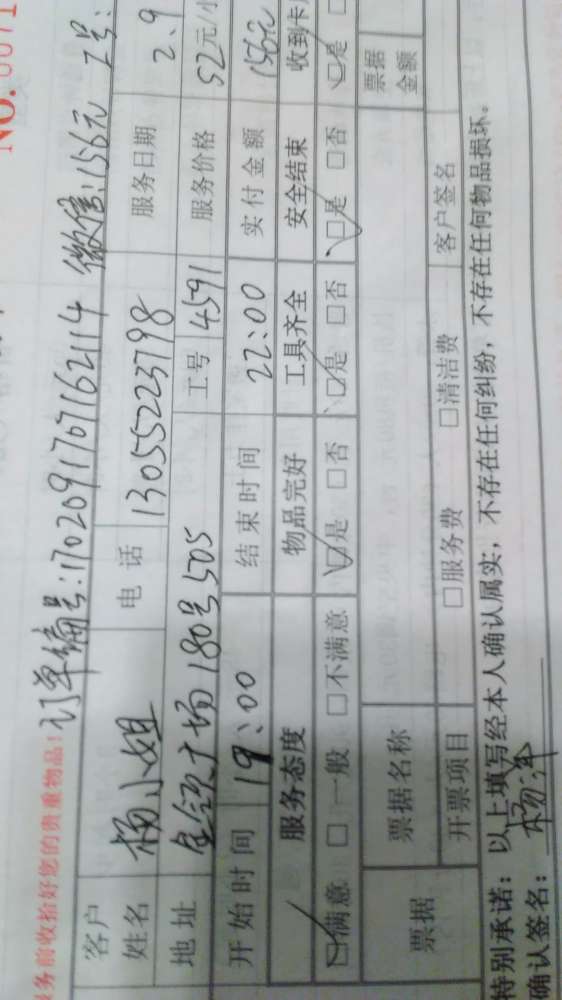 NO.0071
服务前收拾好您的贵重物品!
订单编号:1702091767162114 微信:156元 工号:
客户姓名 杨小姐 电话 13055223798 服务日期 2.9
地址 金领广场180号505 工号 4591 服务价格 52元/小
开始时间 19:00 结束时间 22:00 实付金额 156元
服务态度 物品完好 工具齐全 安全结束 收到卡
☑满意 □一般 □不满意 ☑是 □否 ☑是 □否 ☑是 □否 ☑是 □
票据 票据名称 票据金额
开票项目 □服务费 □清洁费 客户签名
特别承诺:以上填写经本人确认属实,不存在任何纠纷,不存在任何物品损坏。
确认签名:杨洋